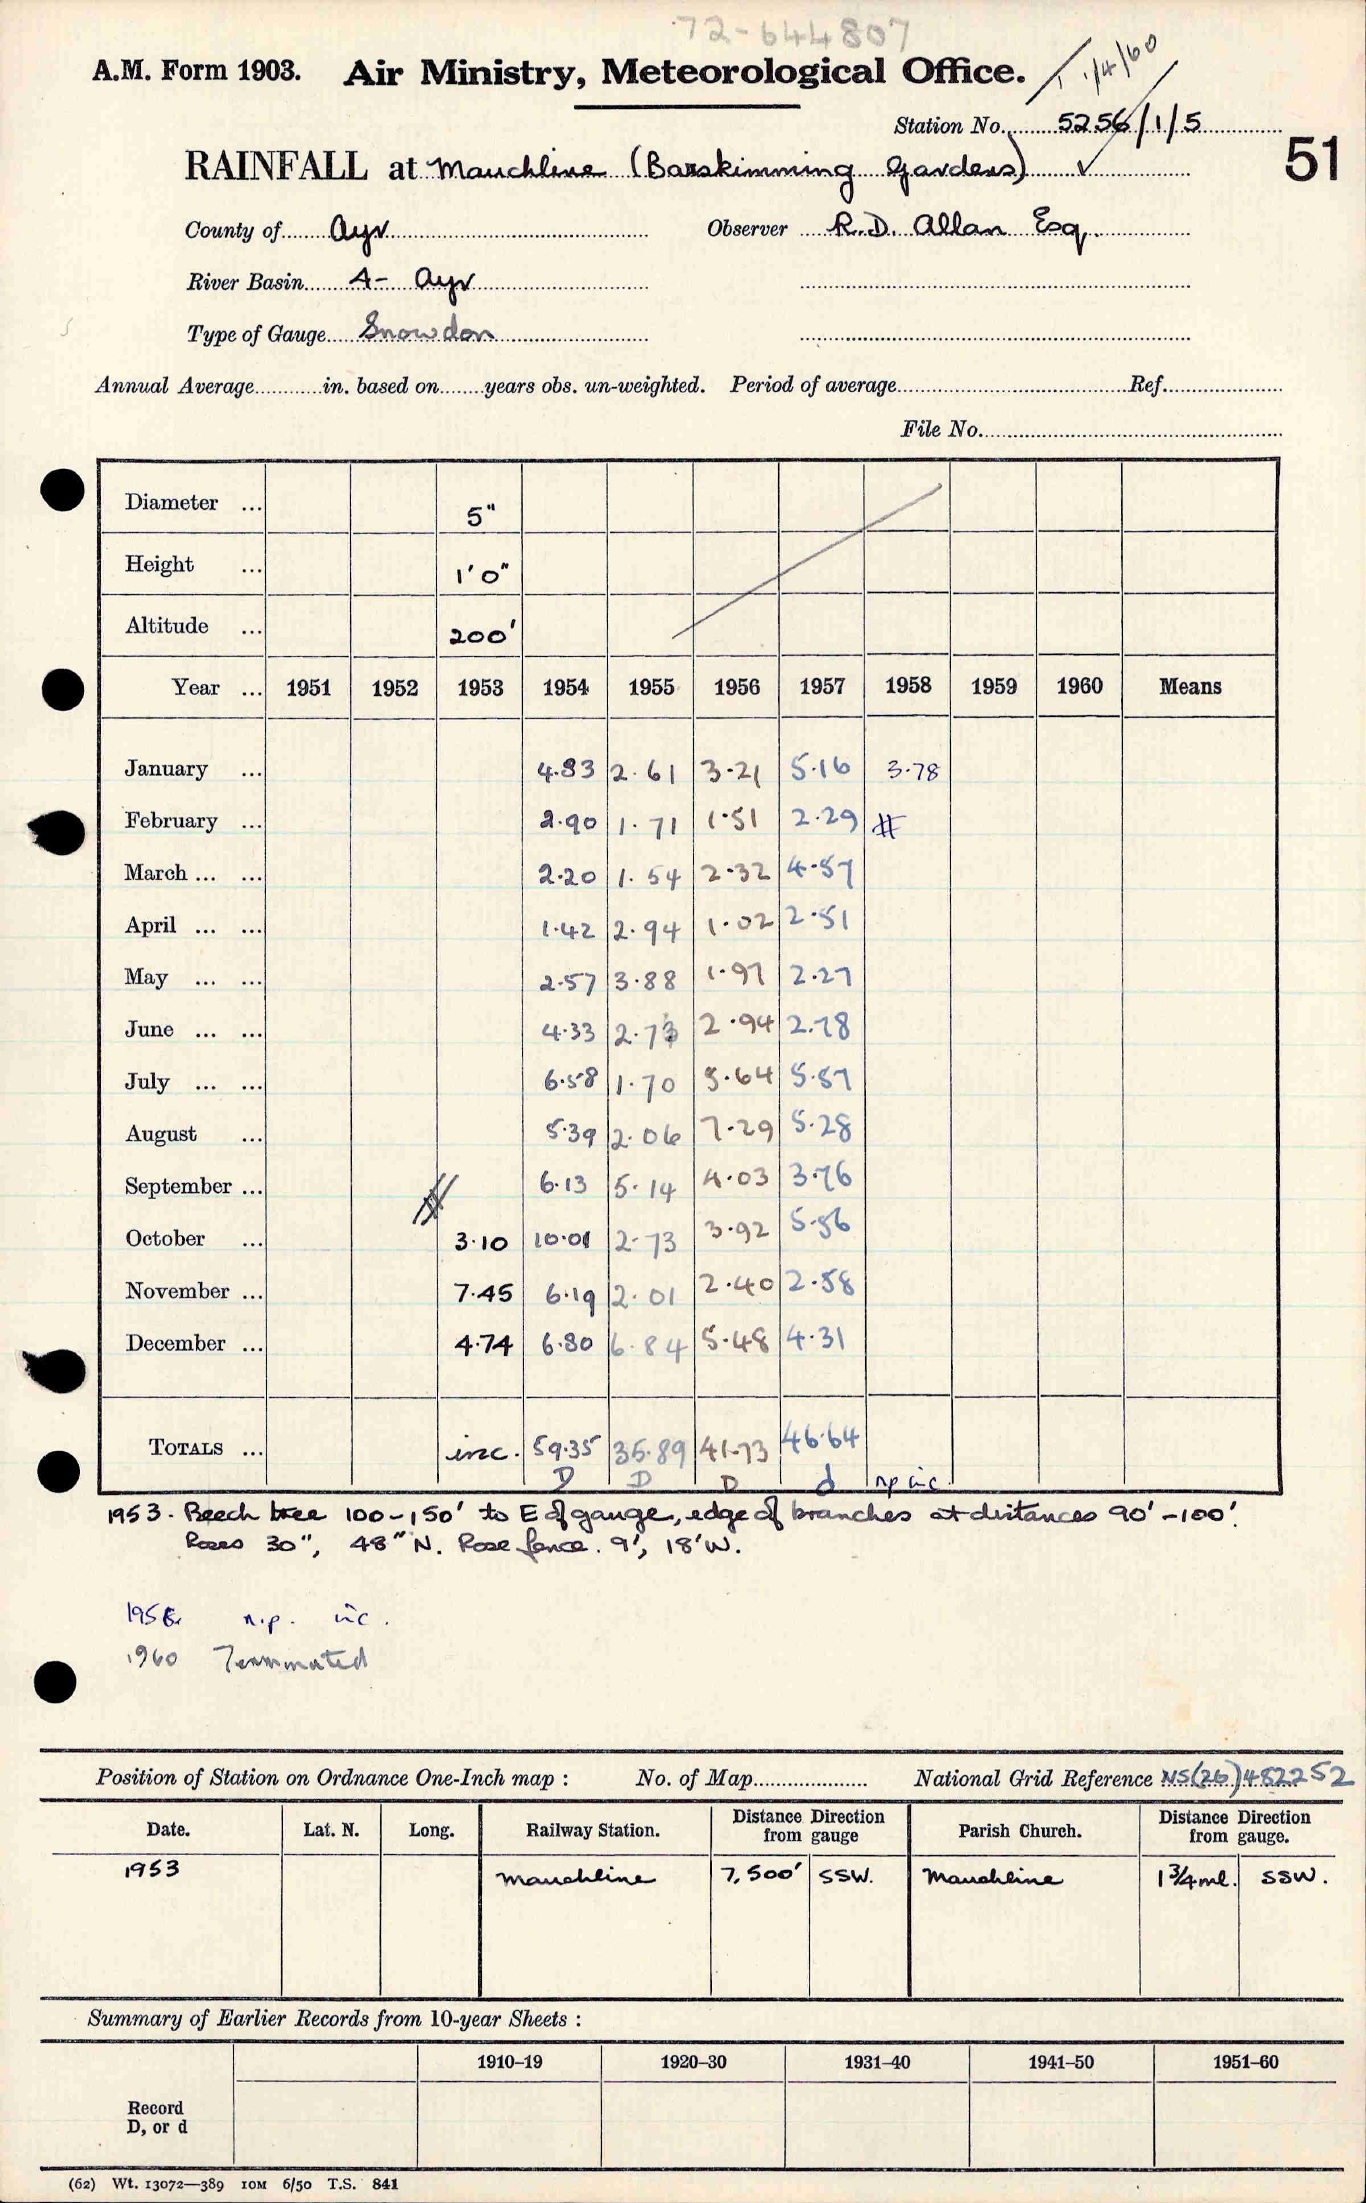 72-644807
A.M. Form 1903. Air Ministry, Meteorological Office. T 1/4/60
Station No. 5256/1/5
RAINFALL at Mauchline (Barskimming Gardens) ✓ 51
County of Ayr Observer R.D. Allan Esq.
River Basin A- Ayr
Type of Gauge Snowdon
Annual Average in. based on years obs. un-weighted. Period of average Ref.
File No.
Diameter ... 5"
Height ... 1'0"
Altitude ... 200'
Year ... 1951 1952 1953 1954 1955 1956 1957 1958 1959 1960 Means
January ... 4.83 2.61 3.21 5.16 3.78
February ... 2.90 1.71 1.51 2.29 #
March ... ... 2.20 1.54 2.32 4.57
April ... ... 1.42 2.94 1.02 2.51
May ... ... 2.57 3.88 1.97 2.27
June ... ... 4.33 2.73 2.94 2.78
July ... ... 6.58 1.70 5.64 5.57
August ... 5.39 2.06 7.29 5.28
September ... # 6.13 5.14 4.03 3.76
October ... 3.10 10.01 2.73 3.92 5.56
November ... 7.45 6.19 2.01 2.40 2.58
December ... 4.74 6.80 6.84 5.48 4.31
TOTALS ... inc. 59.35 35.89 41.73 46.64
D D D d n.p inc.
1953. Beech tree 100-150' to E of gauge, edge of branches at distances 90'-100'.
Roses 30", 48" N. Rose fence. 9', 18' W.
1958 n.p. inc.
1960 Terminated
Position of Station on Ordnance One-Inch map : No. of Map National Grid Reference NS(26)482252
Date. Lat. N. Long. Railway Station. Distance Direction from gauge Parish Church. Distance Direction from gauge.
1953 Mauchline 7,500' SSW. Mauchline 1¾ml. SSW.
Summary of Earlier Records from 10-year Sheets :
1910–19 1920–30 1931–40 1941–50 1951–60
Record
D, or d
(62) Wt. 13072—389 10M 6/50 T.S. 841